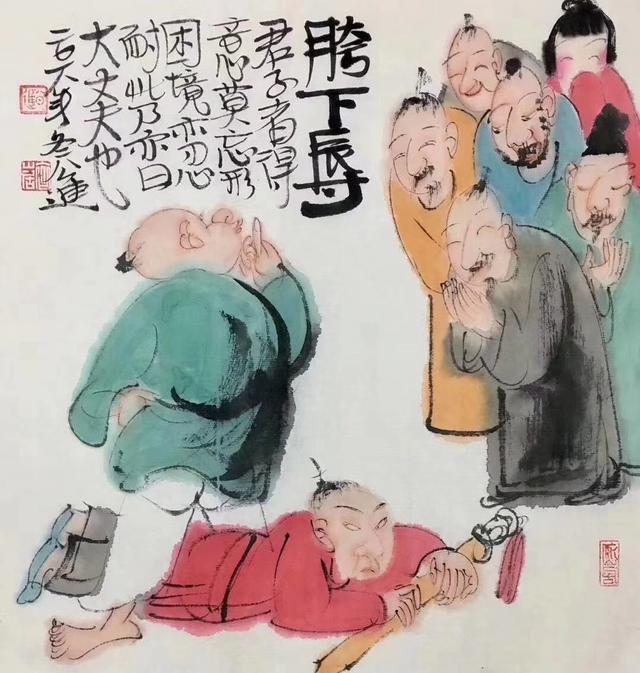 胯下辱
君子者得
意莫忘形
困境亦忍
耐此乃亦曰
大丈夫也
二〇一六年冬進